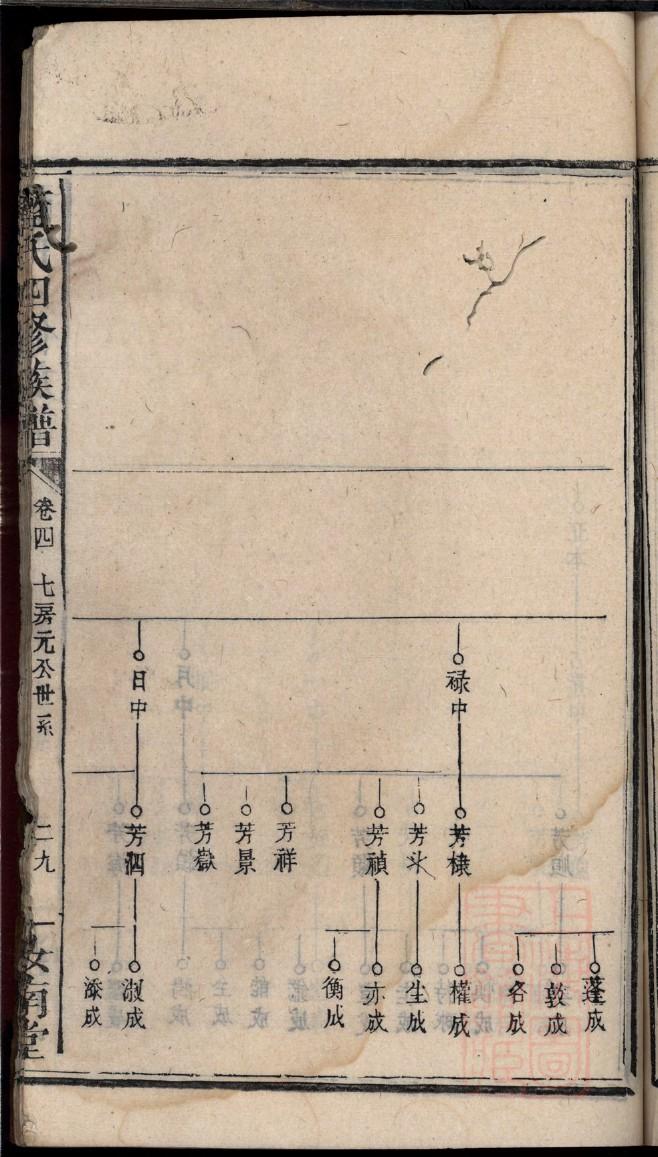 祿中
日中
芳棣
芳斗
芳禎
芳祥
芳景
芳嶽
芳泗
蓬成
敦成
名成
權成
生成
亦成
衡成
淑成
添成
藍氏四修族譜
卷四
七房元公世系
二九
汝南堂